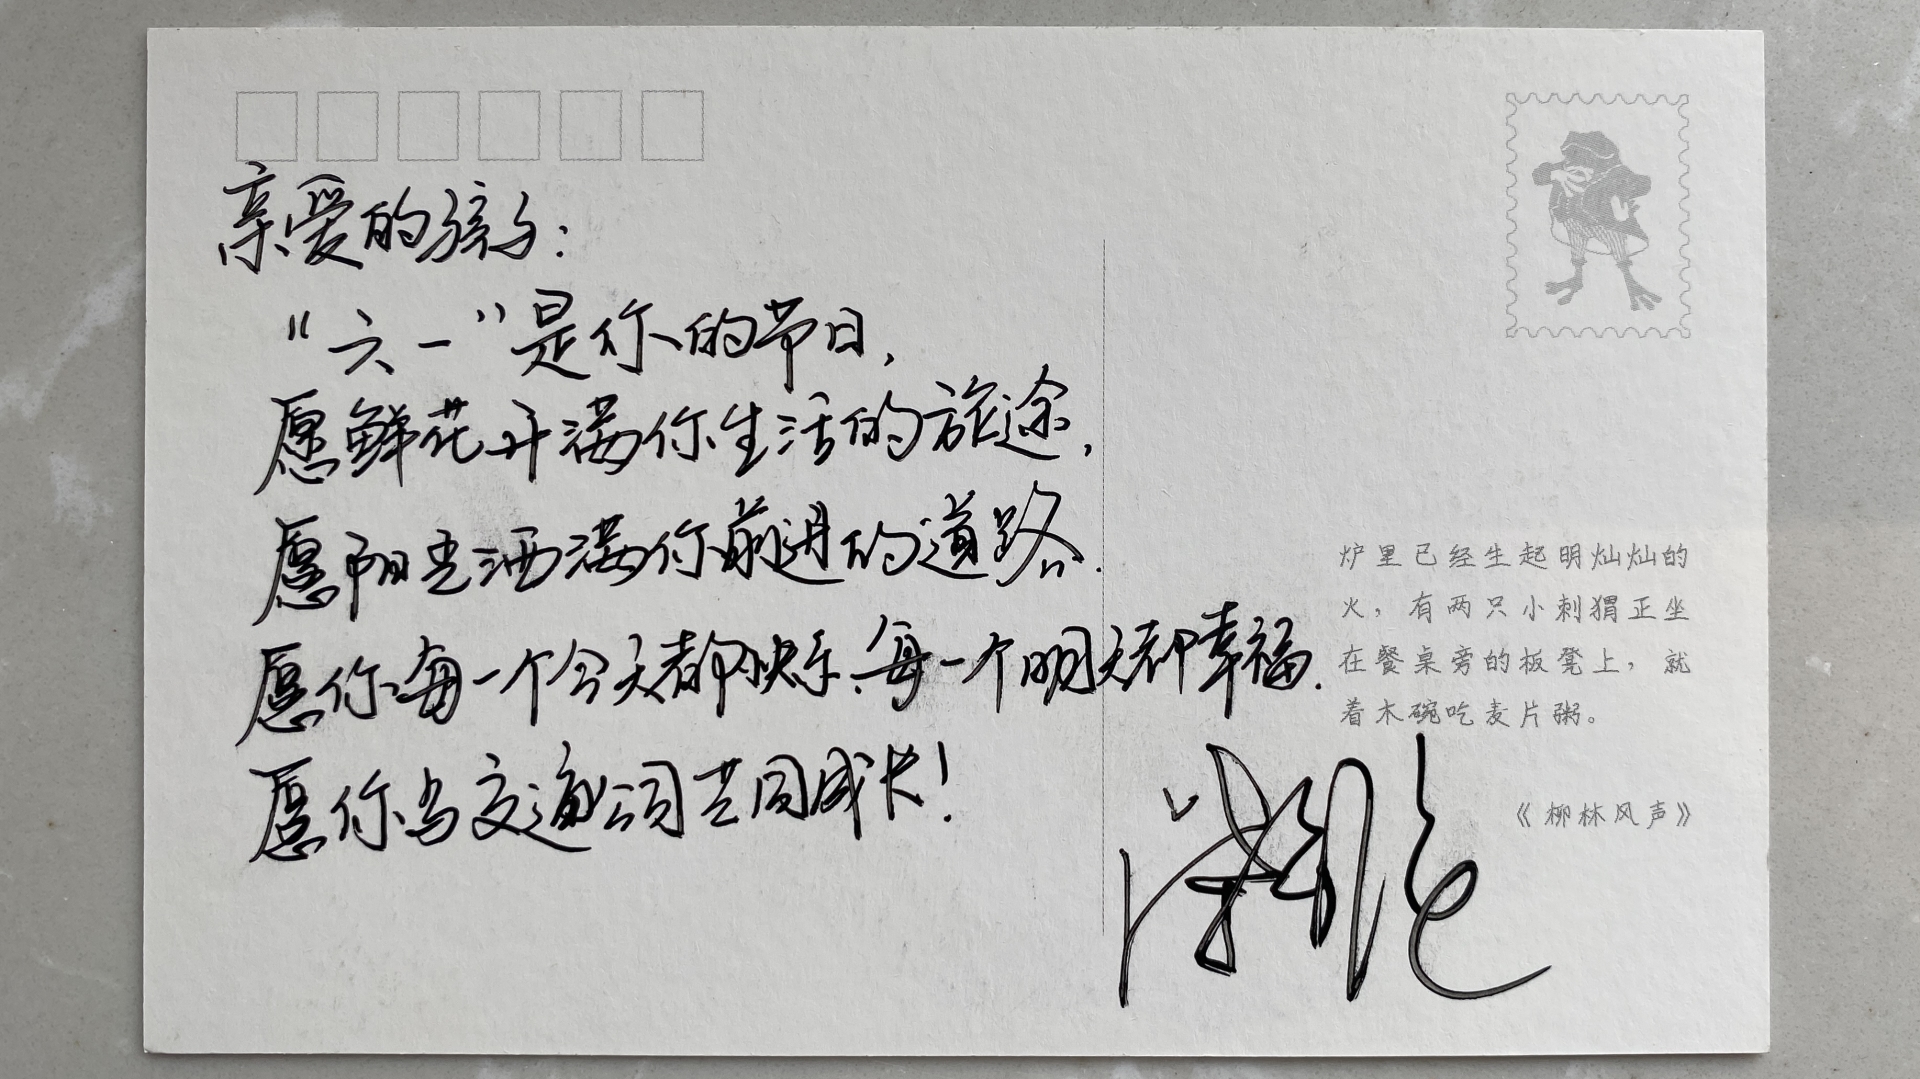 亲爱的孩子：
“六一”是你的节日，
愿鲜花开满你生活的旅途，
愿阳光洒满你前进的道路.
愿你每一个今天都快乐、每一个明天都幸福.
愿你与交通公司共同成长！
炉里已经生起明灿灿的
火，有两只小刺猬正坐
在餐桌旁的板凳上，就
着木碗吃麦片粥。
《柳林风声》